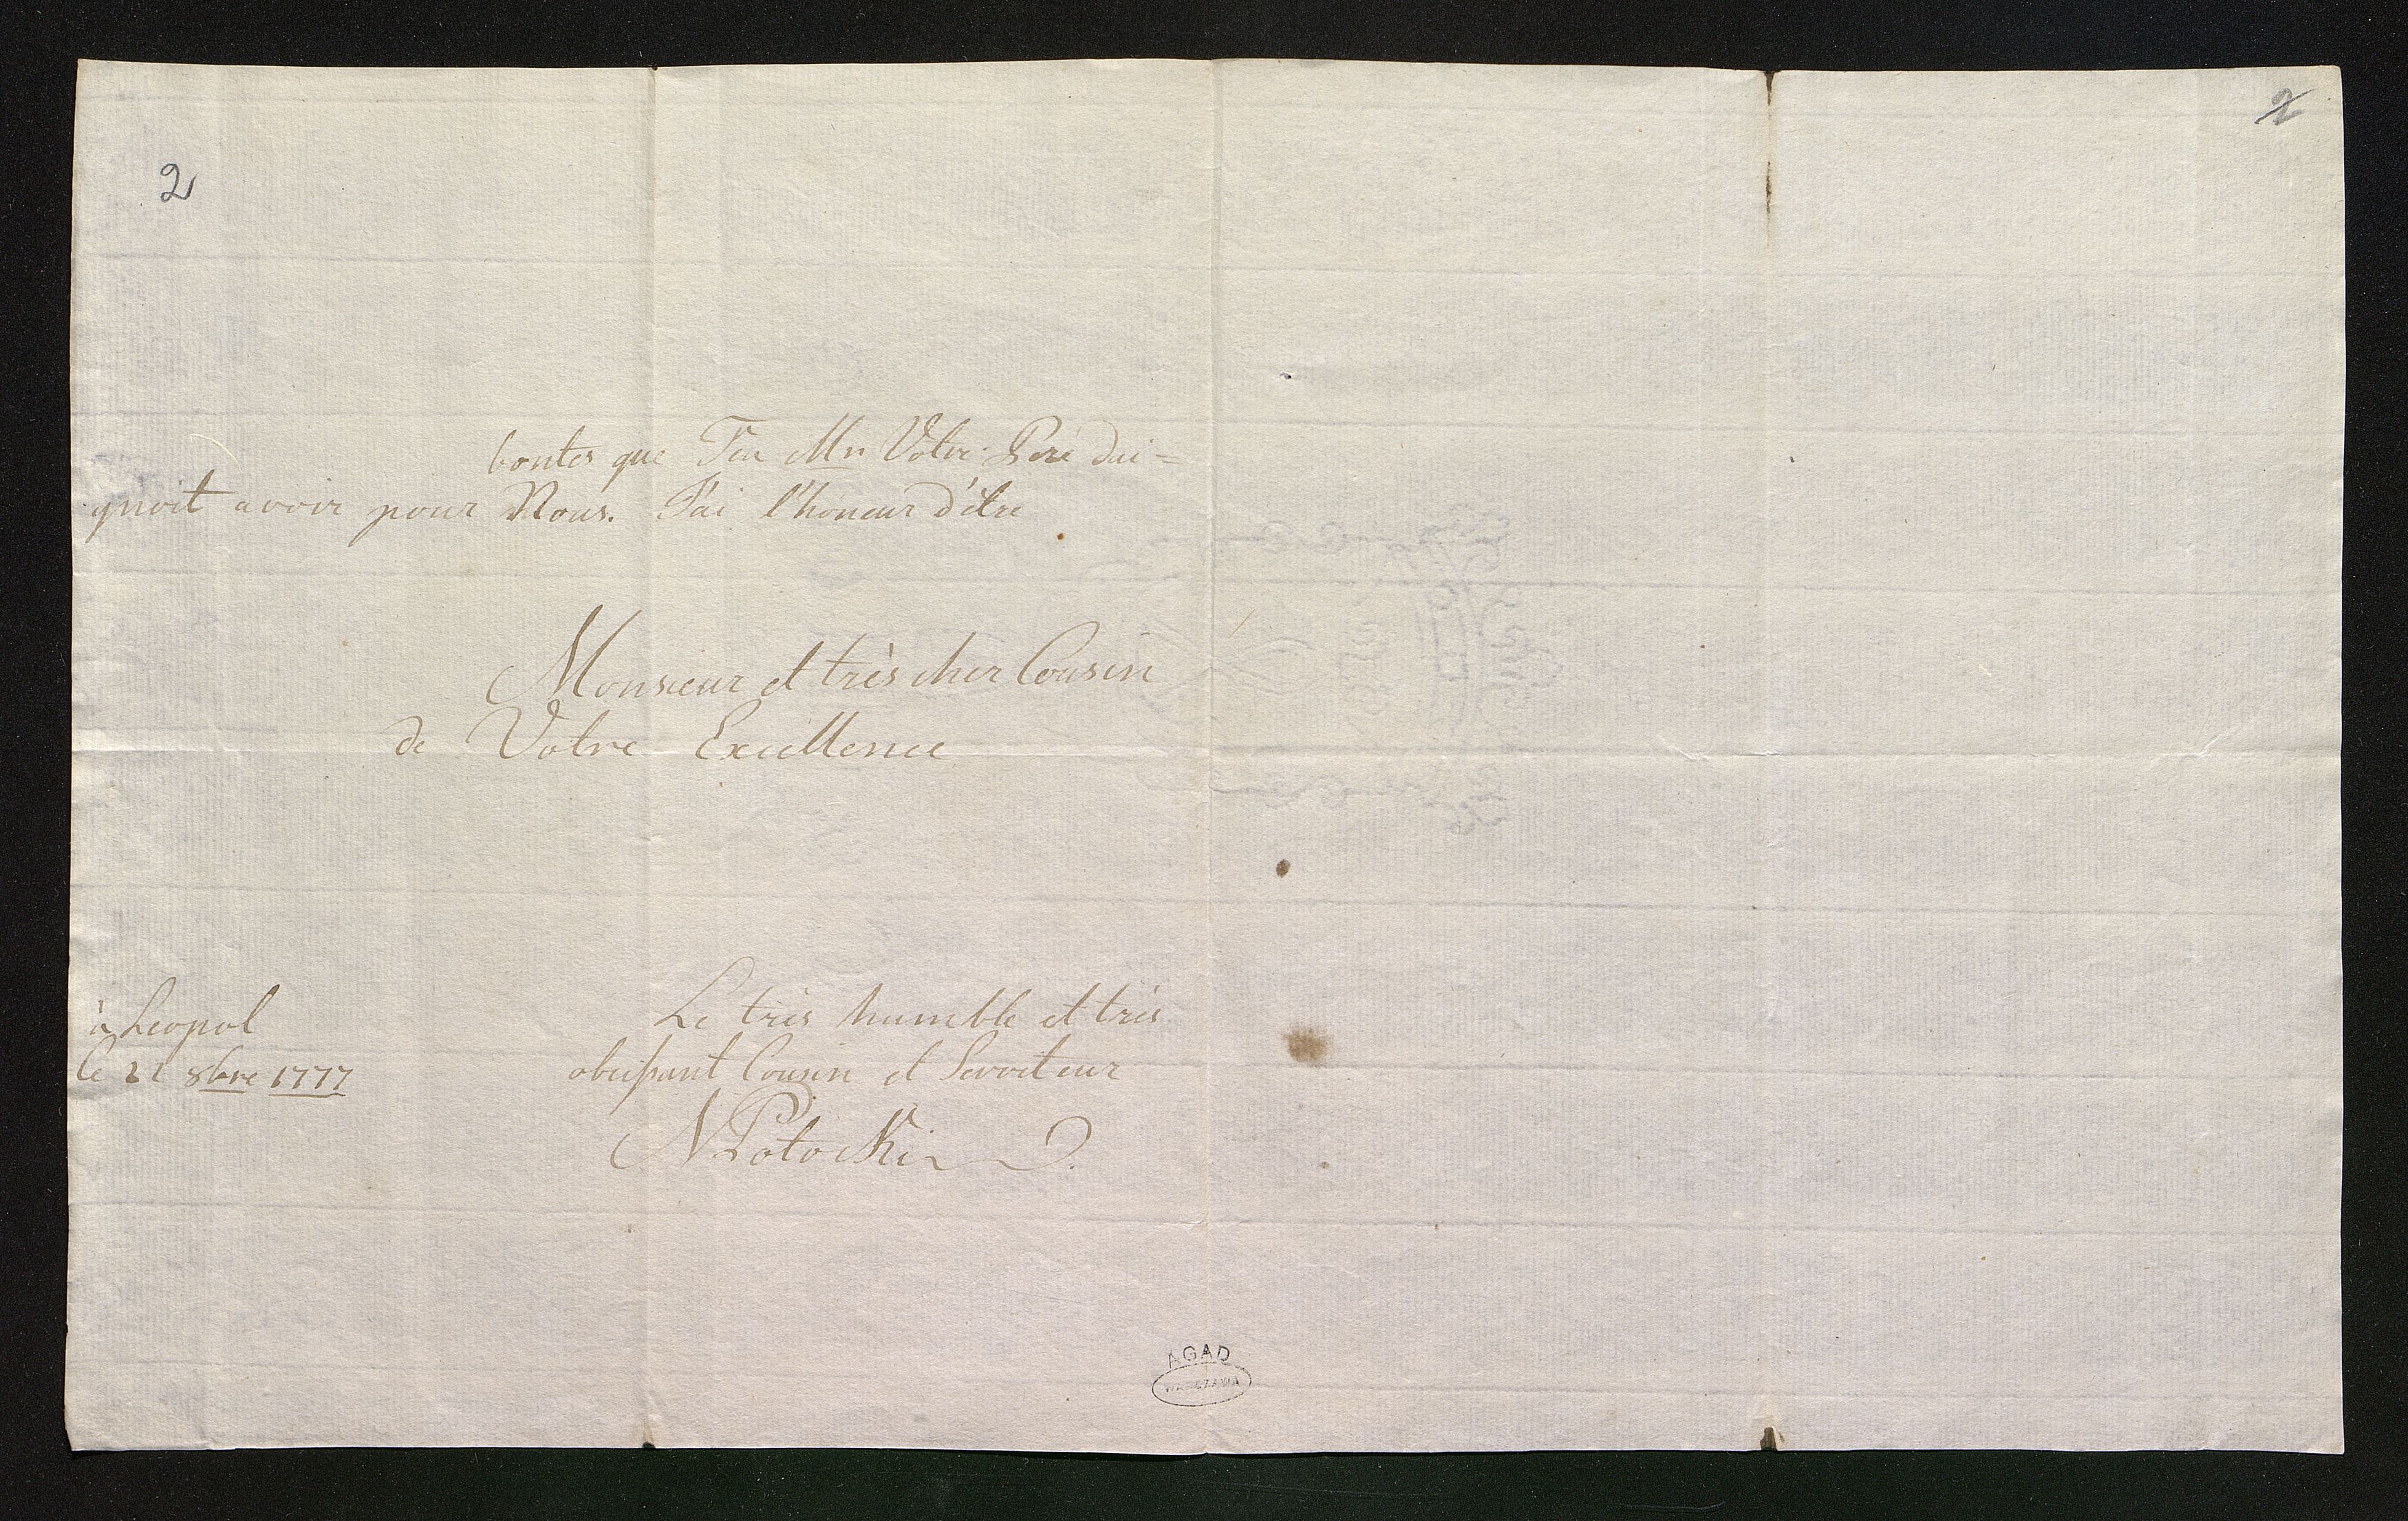 2
2
bontés que Feu Mr Votre Pere dai=
gnoit avoir pour Nous. J'ai l'honeur d'être
Monsieur et très cher Cousin
de Votre Excellence
à Leopol
le 21 8bre 1777
Le très humble et très
obeissant Cousin et Serviteur
NPotocki
AGAD
WARSZAWA